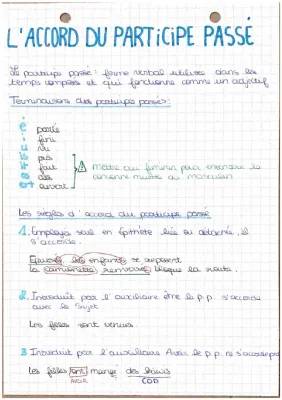 L'ACCORD DU PARTICIPE PASSÉ
Le participe passé : forme verbal utilisée dans les
temps composés et qui fonctionne comme un adjectif
Terminaisons des participe passés :
é parlé
i fini
u vu
pris
fait
ouvert
mettre au féminin pour entendre la
consonne muette au masculin
Les règles d'accord du participe passé
1. Employé seul en épithète liée ou détachée, il
s'accorde.
Épuisés, les enfants se reposent
La camionnette remorquée bloque la route.
2. Introduit par l'auxiliaire être le p.p. s'accorde
avec le sujet
Les filles sont venues.
3 Introduit par l'auxiliaire Avoir le p.p. ne s'accorde pas
Les filles ont mangé des kiwis
AVOIR COD